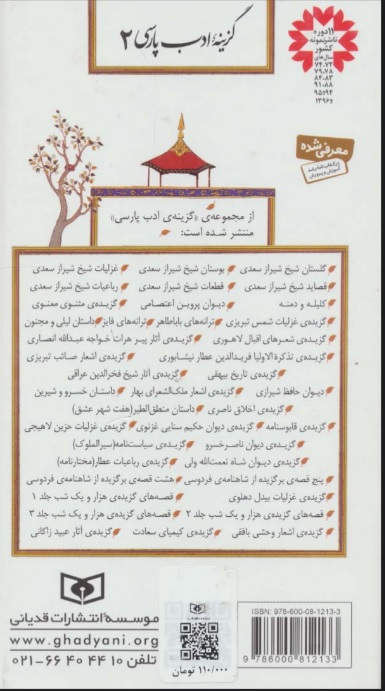 گزینهٔ ادب پارسی ۲
۱۱ دوره
ناشر نمونه
کشور
سال‌های
۷۴،۷۲
۷۹،۷۸
۸۴،۸۳
۹۱،۸۸
۹۵،۹۴
۱۳۹۶
معرفی شده
از مجموعه‌ی «گزینه‌ی ادب پارسی»
منتشر شده است:
گلستان شیخ شیراز سعدی بوستان شیخ شیراز سعدی غزلیات شیخ شیراز سعدی
قصاید شیخ شیراز سعدی قطعات شیخ شیراز سعدی رباعیات شیخ شیراز سعدی
کلیله و دمنه دیوان پروین اعتصامی گزیده‌ی مثنوی معنوی
گزیده‌ی غزلیات شمس تبریزی ترانه‌های باباطاهر ترانه‌های فایز داستان لیلی و مجنون
گزیده‌ی شعرهای اقبال لاهوری گزیده‌ی آثار پیر هرات خواجه عبدالله انصاری
گزیده‌ی تذکرة الاولیا فریدالدین عطار نیشابوری گزیده‌ی اشعار صائب تبریزی
گزیده‌ی تاریخ بیهقی گزیده‌ی آثار شیخ فخرالدین عراقی
دیوان حافظ شیرازی گزیده‌ی اشعار ملک‌الشعرای بهار داستان خسرو و شیرین
گزیده‌ی اخلاق ناصری داستان منطق‌الطیر (هفت شهر عشق)
گزیده‌ی قابوسنامه گزیده‌ی دیوان حکیم سنایی غزنوی گزیده‌ی غزلیات حزین لاهیجی
گزیده‌ی دیوان ناصرخسرو گزیده‌ی سیاست‌نامه (سیرالملوک)
گزیده‌ی دیوان شاه نعمت‌الله ولی گزیده‌ی رباعیات عطار (مختارنامه)
پنج قصه‌ی برگزیده از شاهنامه‌ی فردوسی هشت قصه‌ی برگزیده از شاهنامه‌ی فردوسی
گزیده‌ی غزلیات بیدل دهلوی قصه‌های گزیده‌ی هزار و یک شب جلد ۱
قصه‌های گزیده‌ی هزار و یک شب جلد ۲ قصه‌های گزیده‌ی هزار و یک شب جلد ۳
گزیده‌ی اشعار وحشی بافقی گزیده‌ی کیمیای سعادت گزیده‌ی آثار عبید زاکانی
موسسه انتشارات قدیانی
www.ghadyani.org
تلفن ۱۰ ۴۴ ۴۰ ۶۶-۰۲۱
۱۱۰/۰۰۰ تومان
ISBN: 978-600-08-1213-3
9 786000 812133